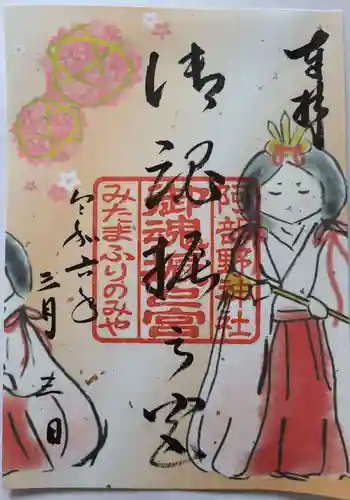 奉拝
御魂振之宮
阿部野神社
御魂振之宮
みたまふりのみや
令和六年
三月
日